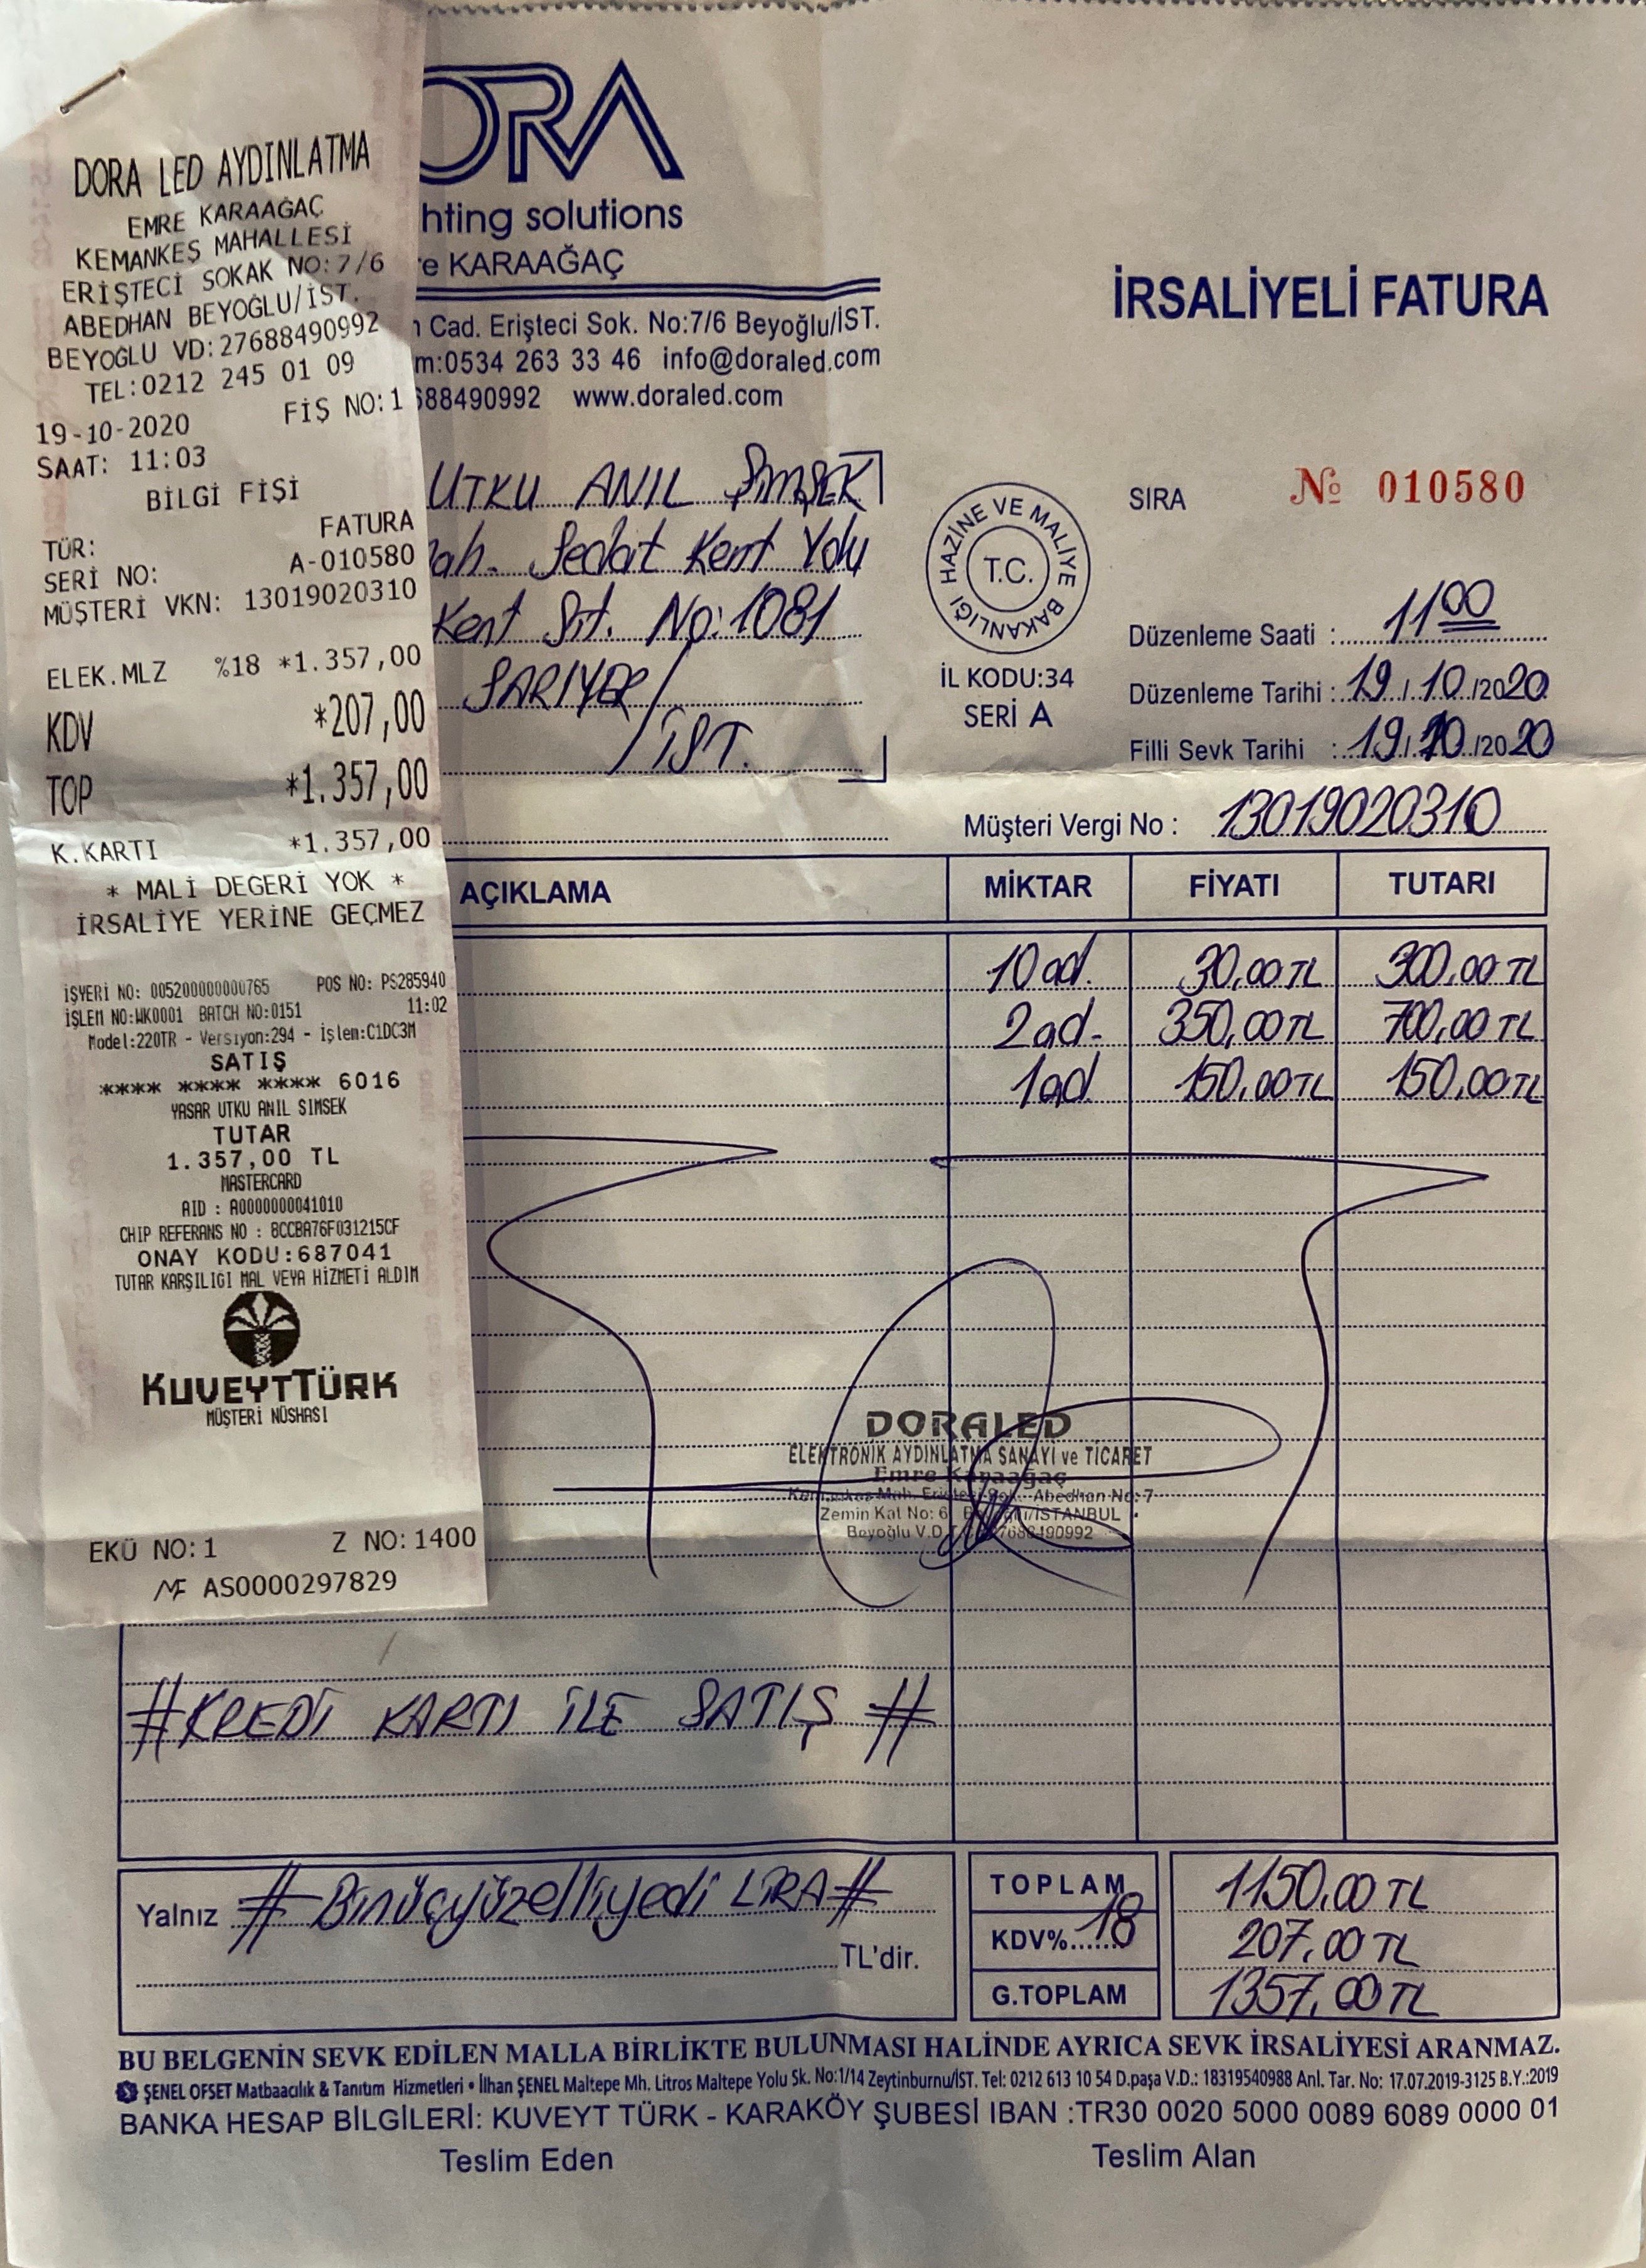 DORA LED AYDINLATMA
EMRE KARAAĞAÇ
KEMANKEŞ MAHALLESİ
ERİŞTECİ SOKAK NO:7/6
ABEDHAN BEYOĞLU/İST.
BEYOGLU VD:27688490992
TEL:0212 245 01 09
19-10-2020 FİŞ NO:1
SAAT: 11:03
BİLGİ FİŞİ
TÜR: FATURA
SERİ NO: A-010580
MÜŞTERİ VKN: 13019020310
ELEK.MLZ %18 *1.357,00
KDV *207,00
TOP *1.357,00
K.KARTI *1.357,00
* MALİ DEGERİ YOK *
İRSALİYE YERİNE GEÇMEZ
İŞYERİ NO: 005200000000765 POS NO: PS285940
İŞLEM NO:WK0001 BATCH NO:0151 11:02
Model:220TR - Versiyon:294 - İşlem:C1DC3M
SATIŞ
**** **** **** 6016
YASAR UTKU ANIL SIMSEK
TUTAR
1.357,00 TL
MASTERCARD
AID : A0000000041010
CHIP REFERANS NO : 8CCBA76F031215CF
ONAY KODU:687041
TUTAR KARŞILIĞI MAL VEYA HİZMETİ ALDIM
KUVEYTTÜRK
MÜŞTERİ NÜSHASI
EKÜ NO:1 Z NO:1400
MF AS0000297829
ORA
hting solutions
e KARAAĞAÇ
Cad. Erişteci Sok. No:7/6 Beyoğlu/İST.
m:0534 263 33 46 info@doraled.com
688490992 www.doraled.com
İRSALİYELİ FATURA
UTKU ANIL ŞİMŞEK
ah. Sedat Kent Yolu
Kent Sit. No:1081
SARIYER/
İST.
HAZİNE VE MALİYE BAKANLIĞI
T.C.
İL KODU:34
SERİ A
SIRA № 010580
Düzenleme Saati : 11 00
Düzenleme Tarihi : 19/10/2020
Filli Sevk Tarihi : 19/10/2020
Müşteri Vergi No : 13019020310
AÇIKLAMA MİKTAR FİYATI TUTARI
10 ad. 30,00 TL 300,00 TL
2 ad. 350,00 TL 700,00 TL
1 ad. 150,00 TL 150,00 TL
DORALED
ELEKTRONİK AYDINLATMA SANAYİ ve TİCARET
Emre Karaağaç
Kemankeş Mah. Erişteci Sok. Abedhan No:7
Zemin Kat No: 6 /İSTANBUL
Beyoğlu V.D. 27688490992
#KREDİ KARTI İLE SATIŞ #
Yalnız # Binüçyüzelliyedi LİRA#
TL'dir.
TOPLAM 1150,00 TL
KDV% 18 207,00 TL
G.TOPLAM 1357,00 TL
BU BELGENİN SEVK EDİLEN MALLA BİRLİKTE BULUNMASI HALİNDE AYRICA SEVK İRSALİYESİ ARANMAZ.
ŞENEL OFSET Matbaacılık & Tanıtım Hizmetleri • İlhan ŞENEL Maltepe Mh. Litros Maltepe Yolu Sk. No:1/14 Zeytinburnu/İST. Tel: 0212 613 10 54 D.paşa V.D.: 18319540988 Anl. Tar. No: 17.07.2019-3125 B.Y.:2019
BANKA HESAP BİLGİLERİ: KUVEYT TÜRK - KARAKÖY ŞUBESİ IBAN :TR30 0020 5000 0089 6089 0000 01
Teslim Eden Teslim Alan